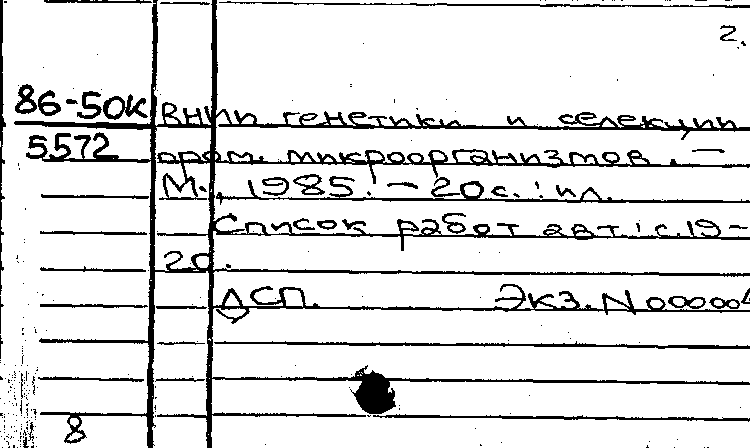 2.
86-50К ВНИИ генетики и селекции
5572 пром. микроорганизмов. –
М., 1985. – 20 с. : ил.
Список работ авт.: с. 19–
20.
ДСП. Экз. N 000004
8